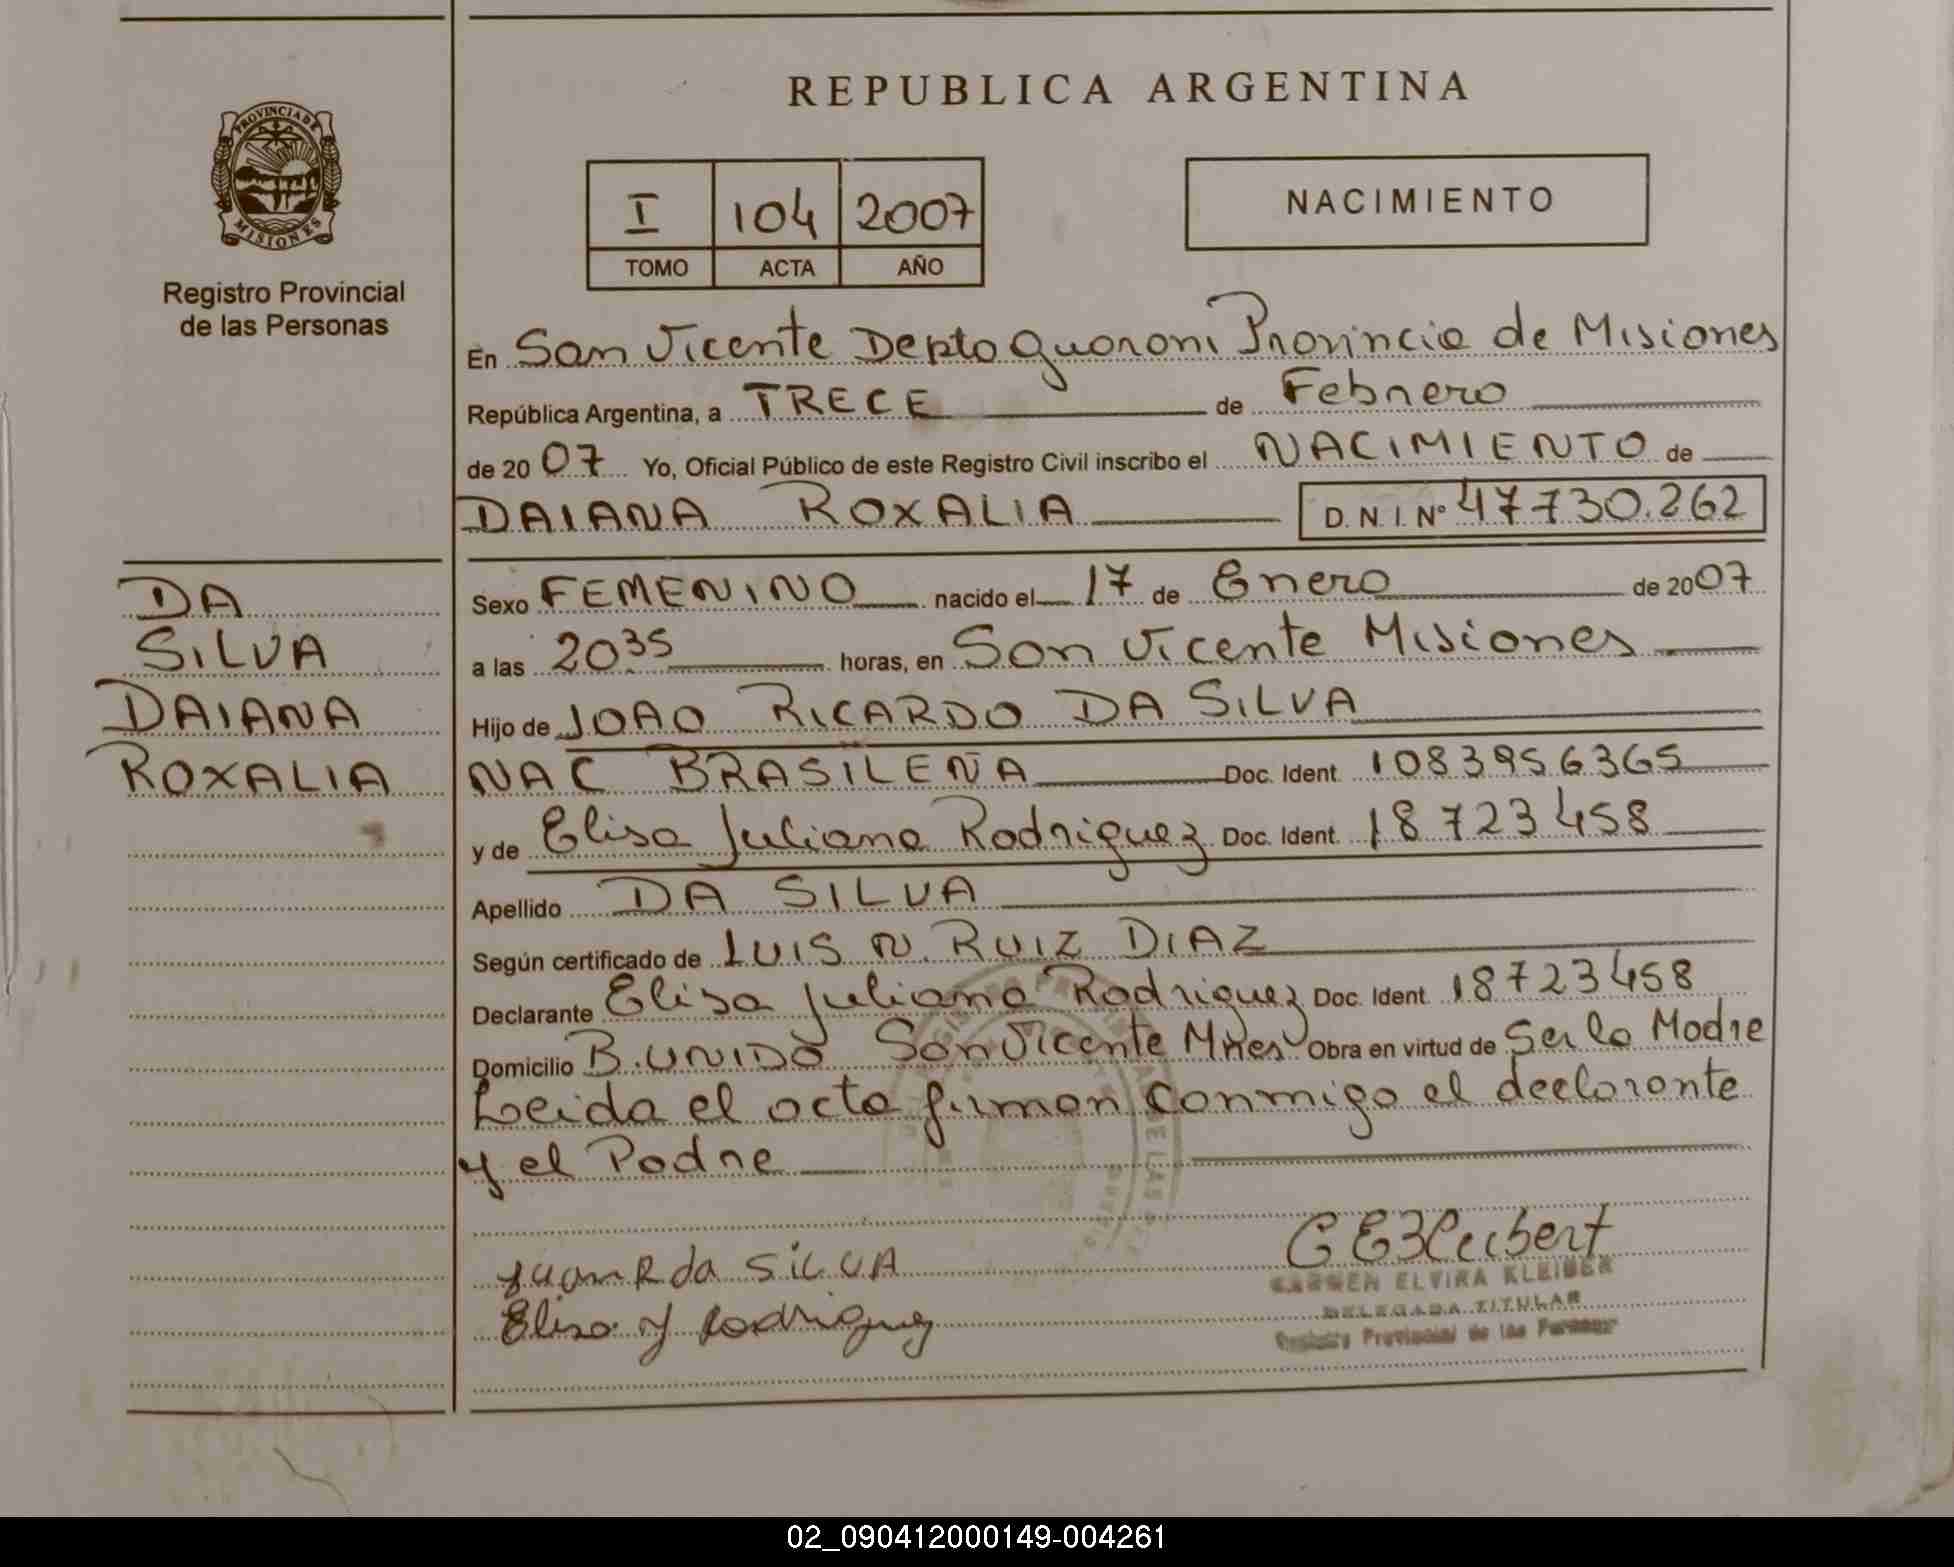 REPUBLICA ARGENTINA
PROVINCIA DE
MISIONES
Registro Provincial
de las Personas
I 104 2007
TOMO ACTA AÑO
NACIMIENTO
En San Vicente Depto Guarani Provincia de Misiones
República Argentina, a TRECE de Febrero
de 2007 Yo, Oficial Público de este Registro Civil inscribo el NACIMIENTO de
DAIANA ROXALIA D.N.I. Nº 47730.262
DA
SILVA
DAIANA
ROXALIA
Sexo FEMENINO nacido el 17 de Enero de 2007
a las 20 35 horas, en San Vicente Misiones
Hijo de JOAO RICARDO DA SILVA
NAC BRASILEÑA Doc. Ident. 1083956365
y de Elisa Juliana Rodriguez Doc. Ident. 18723458
Apellido DA SILVA
Según certificado de LUIS N. RUIZ DIAZ
Declarante Elisa Juliana Rodriguez Doc. Ident. 18723458
Domicilio B. UNIDO San Vicente Mnes Obra en virtud de Ser la Madre
Leida el acta firman conmigo el declarante
y el Padre
Juan R da SiLVA
Elisa y Rodriguez
CARMEN ELVIRA KLEIBER
DELEGADA TITULAR
Registro Provincial de las Personas
02_090412000149-004261